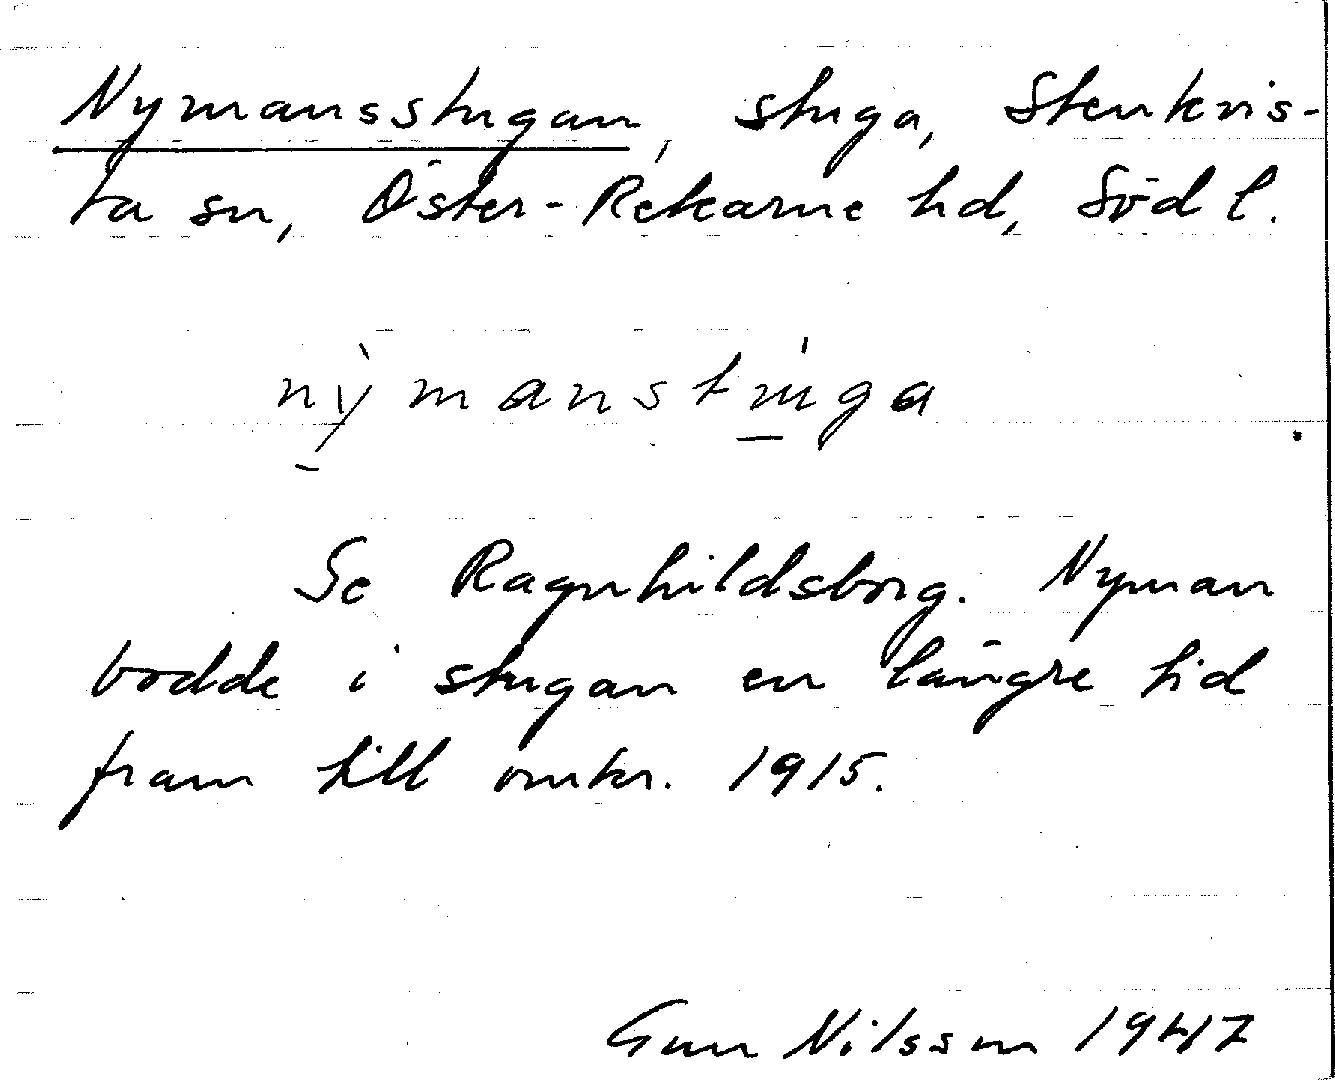 Nymansstugan, stuga, Stenkvis-
ta sn, Öster-Rekarne hd, Södl.
nỳmanstúga
Se Ragnhildsborg. Nyman
bodde i stugan en längre tid
fram till omkr. 1915.
Gun Nilsson 1947